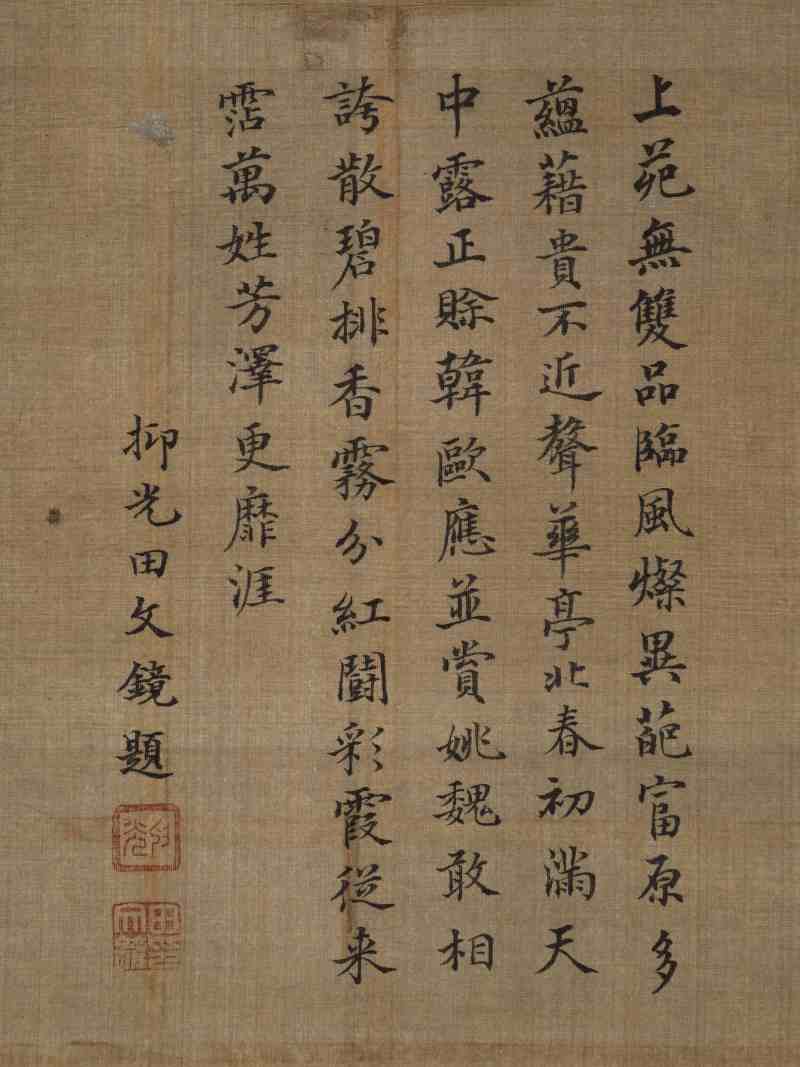 上苑無雙品臨風燦異葩富原多
蘊藉貴不近聲華亭北春初滿天
中露正賒韓歐應並賞姚魏敢相
誇散碧排香霧分紅鬪彩霞從来
霑萬姓芳澤更靡涯
抑光田文鏡題
抑光
田文鏡